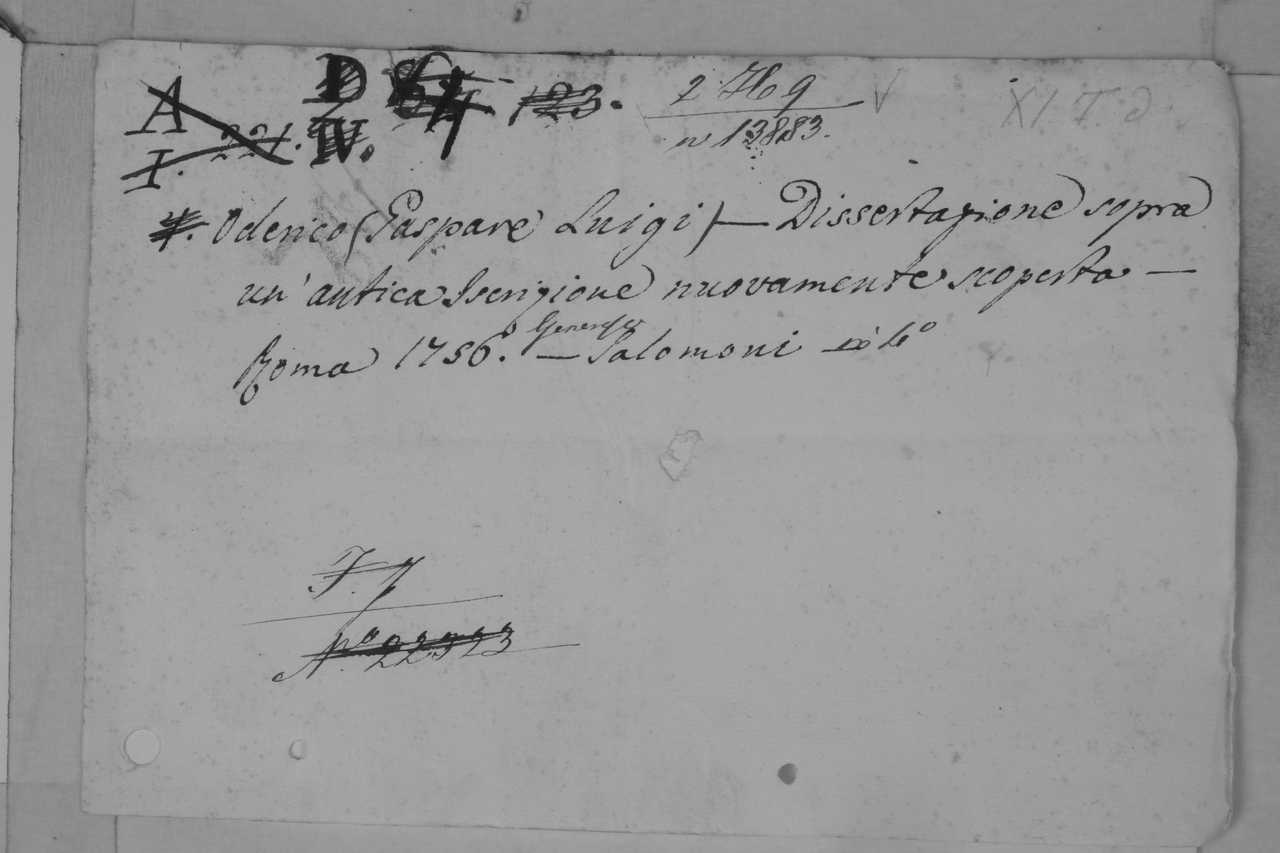 A D 123.
I. 221. IV.
2 H 9
n 13883.
XI. T. d
4. Oderico (Gaspare Luigi) — Dissertazione sopra
un' antica Iscrizione nuovamente scoperta —
Roma 1756. — Generoso Salomoni in 4º
F. J
Nº 22323